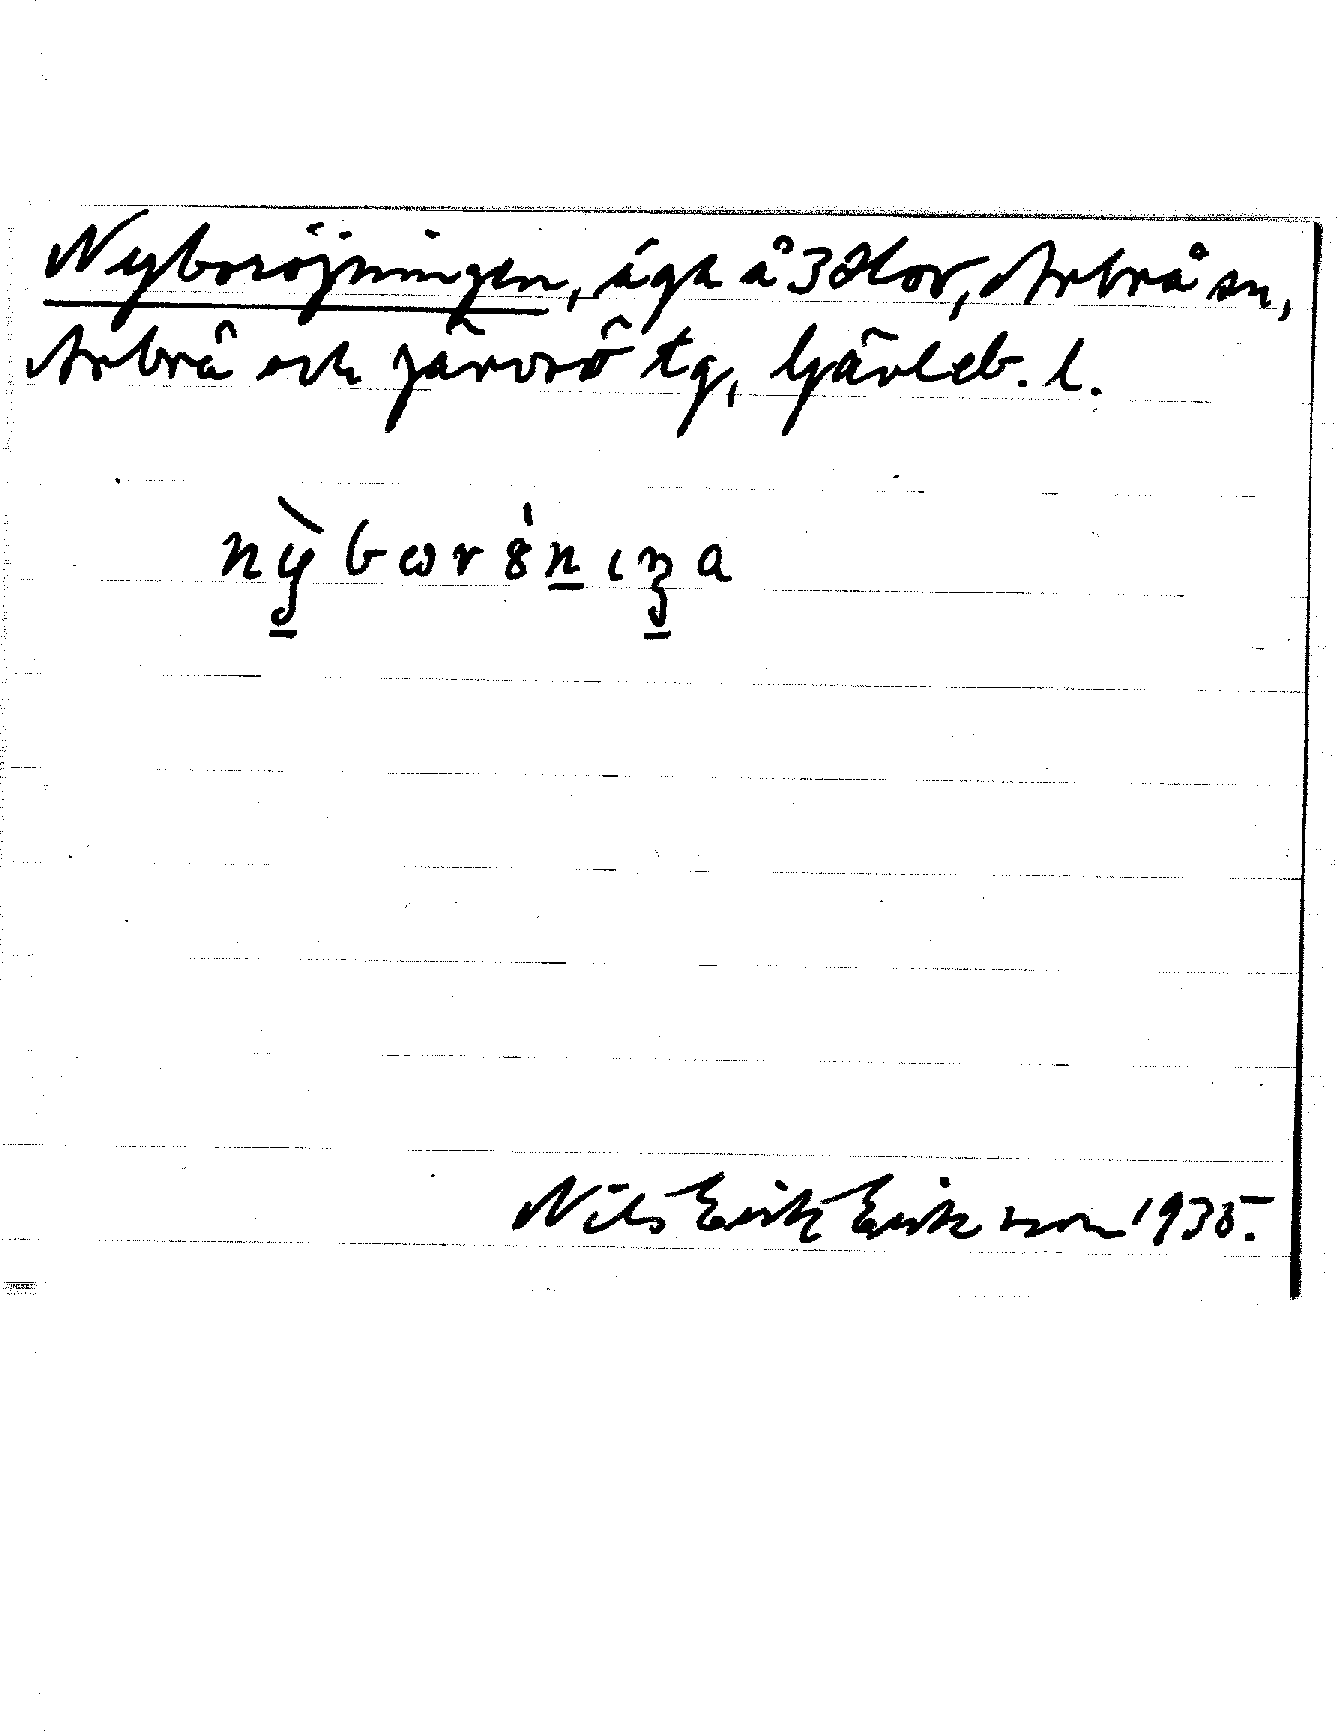 Nyboröjningen, äga å 3 Hov, Arbrå sn,
Arbrå och Järvsö tg, Gävleb. l.
Nils Erik Eriksson 1935.